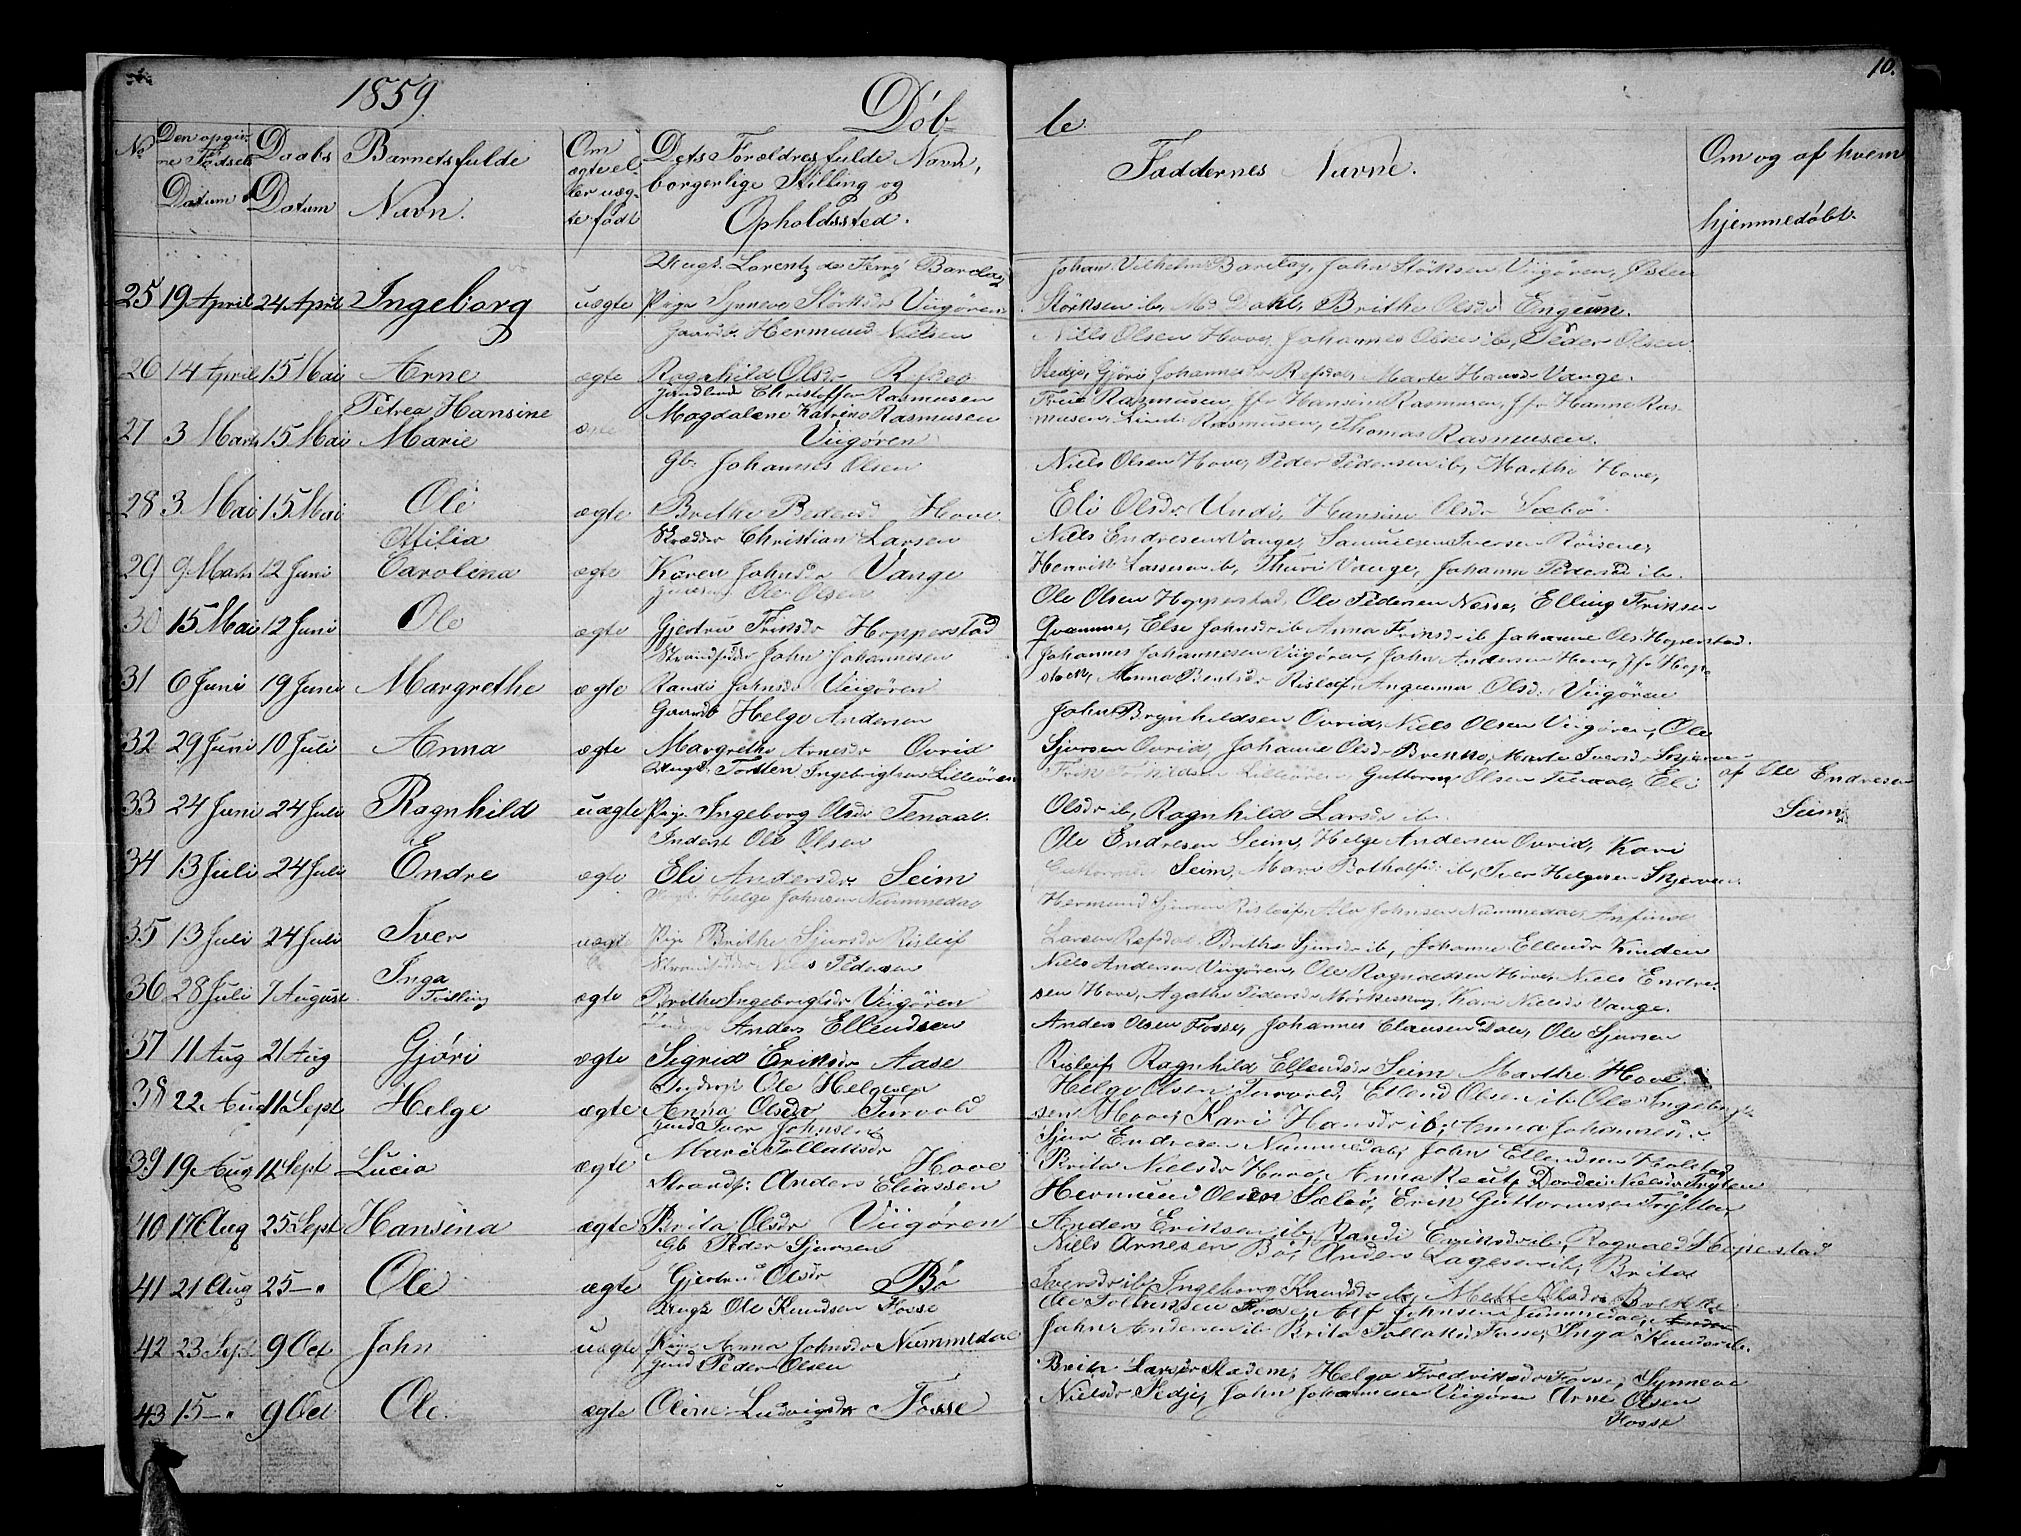 1859.
Døb
te
10.
No
Den opgiv-
ne Fødsels
Datum
Daabs
Datum
Barnets fulde
Navn.
Om
ægte el-
ler uæg-
te født
Dets Forældres fulde Navn,
borgerlige Stilling og
Opholdssted.
Faddernes Navne.
Om og af hvem
hjemmedøbt.
Ungk. Lorentz de Ferry Barclay
Johan Vilhelm Barclay, John Størksen Viigøren, Østen
25 19 April 24 April Ingeborg uægte Pige Synneva Størksdr Viigøren
Størksen ib, Md Dahl, Brithe Olsdr Engum.
Gaardb. Hermund Nielsen
Niels Olsen Hove, Johannes Olsen ib, Peder Olsen
26 14 April 15 Mai Arne ægte Ragnhild Olsdr Refsdal
Stedje, Gjøri Johannesdr Refsdal, Marte Hansdr Vange.
Petrea Hansine Handlende Christoffer Rasmusen
Frue Rasmusen, Jfr Hansine Rasmusen, Jfr Hanne Ras-
27 3 Marts 15 Mai Marie ægte Magdalene Katrine Rasmusen
Viigøren
musen, Rasmusen, Thomas Rasmusen.
Gb. Johannes Olsen
Niels Olsen Hove, Peder Pedersen ib, Marthe Hove,
28 3 Mai 15 Mai Ole ægte Brithe Pedersd Hove.
Eli Olsdr Undi, Hansine Olsdr Sæbø.
Ottilia Skrædder Christian Larsen
Niels Endresen Vange, Samuel Iversen Røisene,
29 9 Marts 12 Juni Carolina ægte Karen Johnsdr Vange
Henrik Lassesen ib, Thuri Vange, Johanne Pedersd ib.
Ole Olsen
Ole Olsen Hopperstad, Ole Pedersen Nesse, Elling Eriksen
30 15 Mai 12 Juni Ole ægte Gjertrue Eriksdr Hopperstad
Qvamme, Else Johnsdr ib Anna Eriksdr ib Johanne Ols. Hoperstad.
Strandsidder John Johannesen
Johannes Johannesen Viigøren, John Andersen Hove, Jfr Hop-
31 6 Juni 19 Juni Margrethe ægte Randi Johnsdr Viigøren
stock, Anna Bentsdr Risløf, Angunna Olsd. Viigøren
Gaardb Helge Andersen
John Brynhildsen Ovrid, Niels Olsen Viigøren, Ole
32 29 Juni 10 Juli Anna ægte Margrethe Arnesdr Ovrid
Sjursen Ovrid, Johanne Olsdr Brekke, Marte Iversd Skjerven
Ungk. Torsten Ingebrigtsen Lilleøren
Erik Torkildsen Lilleøren, Guttorm Olsen Tenaal, Eli af Ole Endresen
33 24 Juni 24 Juli Ragnhild uægte Pige Ingeborg Olsdr Tenaal.
Olsdr ib, Ragnhild Larsdr ib. Seim
Inderst Ole Olsen
Ole Endresen Seim, Helge Andersen Ovrid, Kari
34 13 Juli 24 Juli Endre ægte Eli Andersdr Seim
Guttormsd Seim, Mari Botholfsd ib, Iver Helgesen Skjerven.
Ungk. Helge Johnsen Nummedal
Hermund Sjursen Risløf, Alv Johnsen Nummedal, Anfind
35 13 Juli 24 Juli Iver uægt Pige Brithe Sjursdr Risløf
Larsen Refsdal Brithe Sjursdr ib, Johanne Ellendr Kinden
Inga Strandsidder Niels Pedersen
Niels Andersen Viigøren, Ole Ragnaldsen Hove, Niels Endre-
36 28 Juli 7 August Tvilling ægte Brithe Ingebrigtsdr Viigøren
sen Hove, Agathe Pedersdr Mørkeskog, Kari Nielsdr Vange.
Anders Ellendsen
Anders Olsen Fosse, Johannes Clausen Dale, Ole Sjursen
37 11 Aug 21 Aug Gjøri ægte Sigrid Eriksdr Aase
Risløf Ragnhild Ellendsdr Seim Marthe Hove
Inderst Ole Helgesen
Helge Olsen Turvold, Ellend Olsen ib, Ole Ingebrigt-
38 22 Aug 11 Sept Helge ægte Anna Olsdr Turvold
sen Hove, Kari Hansdr ib, Anna Johannesdr.
Iver Johnsen
Sjur Endresen Nummedal, John Ellendsen Holstad
39 19 Aug 11 Sept Lucia ægte Mari Tollaksdr Hove
Brita Nielsdr Hove, Anna Reut Dordei Nielsdr Trytten
Strands: Anders Eliassen
Hermund Olsen Sæbø, Erik Guttormsen Trytten
40 17 Aug 25 Sept Hansina ægte Brita Olsdr Viigøren
Anders Eriksen ib, Randi Eriksdr ib, Ragnald Hoperstad
Gb Peder Sjursen
Niels Arnesen Bø, Anders Lagesen ib, Brita
41 21 Aug 25 — " Ole ægte Gjertrud Olsdr Bø
Iversdr ib, Ingeborg Knudsdr ib, Mette Olsdr Brekke
Ungk Ole Knudsen Fosse
Ole Tollaksen Fosse, Alf Johnsen Nummedal,
42 23 Sept 9 Oct John uægte Pige Anna Johnsdr Nummedal
John Andersen ib. Brita Tollaks. Fosse, Inga Knudsdr ib.
Peder Olsen
Brita Larsdr Stadem, Helga Fredriksdr Fosse, Synneve
43 15 — " 9 Oct Ole ægte Oline Ludvigsdr Fosse
Nielsdr Stedje, John Johannesen Viigøren Arne Olsen
Fosse